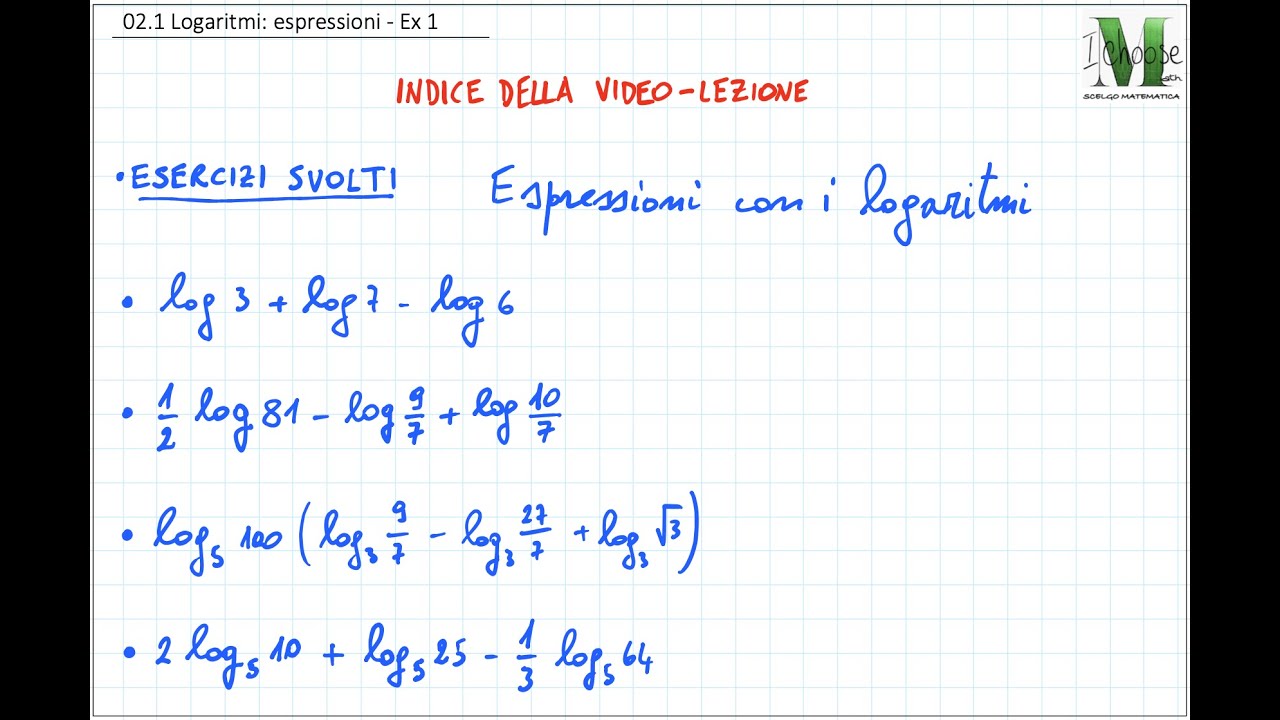 02.1 Logaritmi: espressioni - Ex 1
I choose Math
SCELGO MATEMATICA
INDICE DELLA VIDEO-LEZIONE
• ESERCIZI SVOLTI Espressioni con i logaritmi
• log 3 + log 7 - log 6
• 1/2 log 81 - log 9/7 + log 10/7
• log₅ 100 (log₃ 9/7 - log₃ 27/7 + log₃ √3)
• 2 log₅ 10 + log₅ 25 - 1/3 log₅ 64